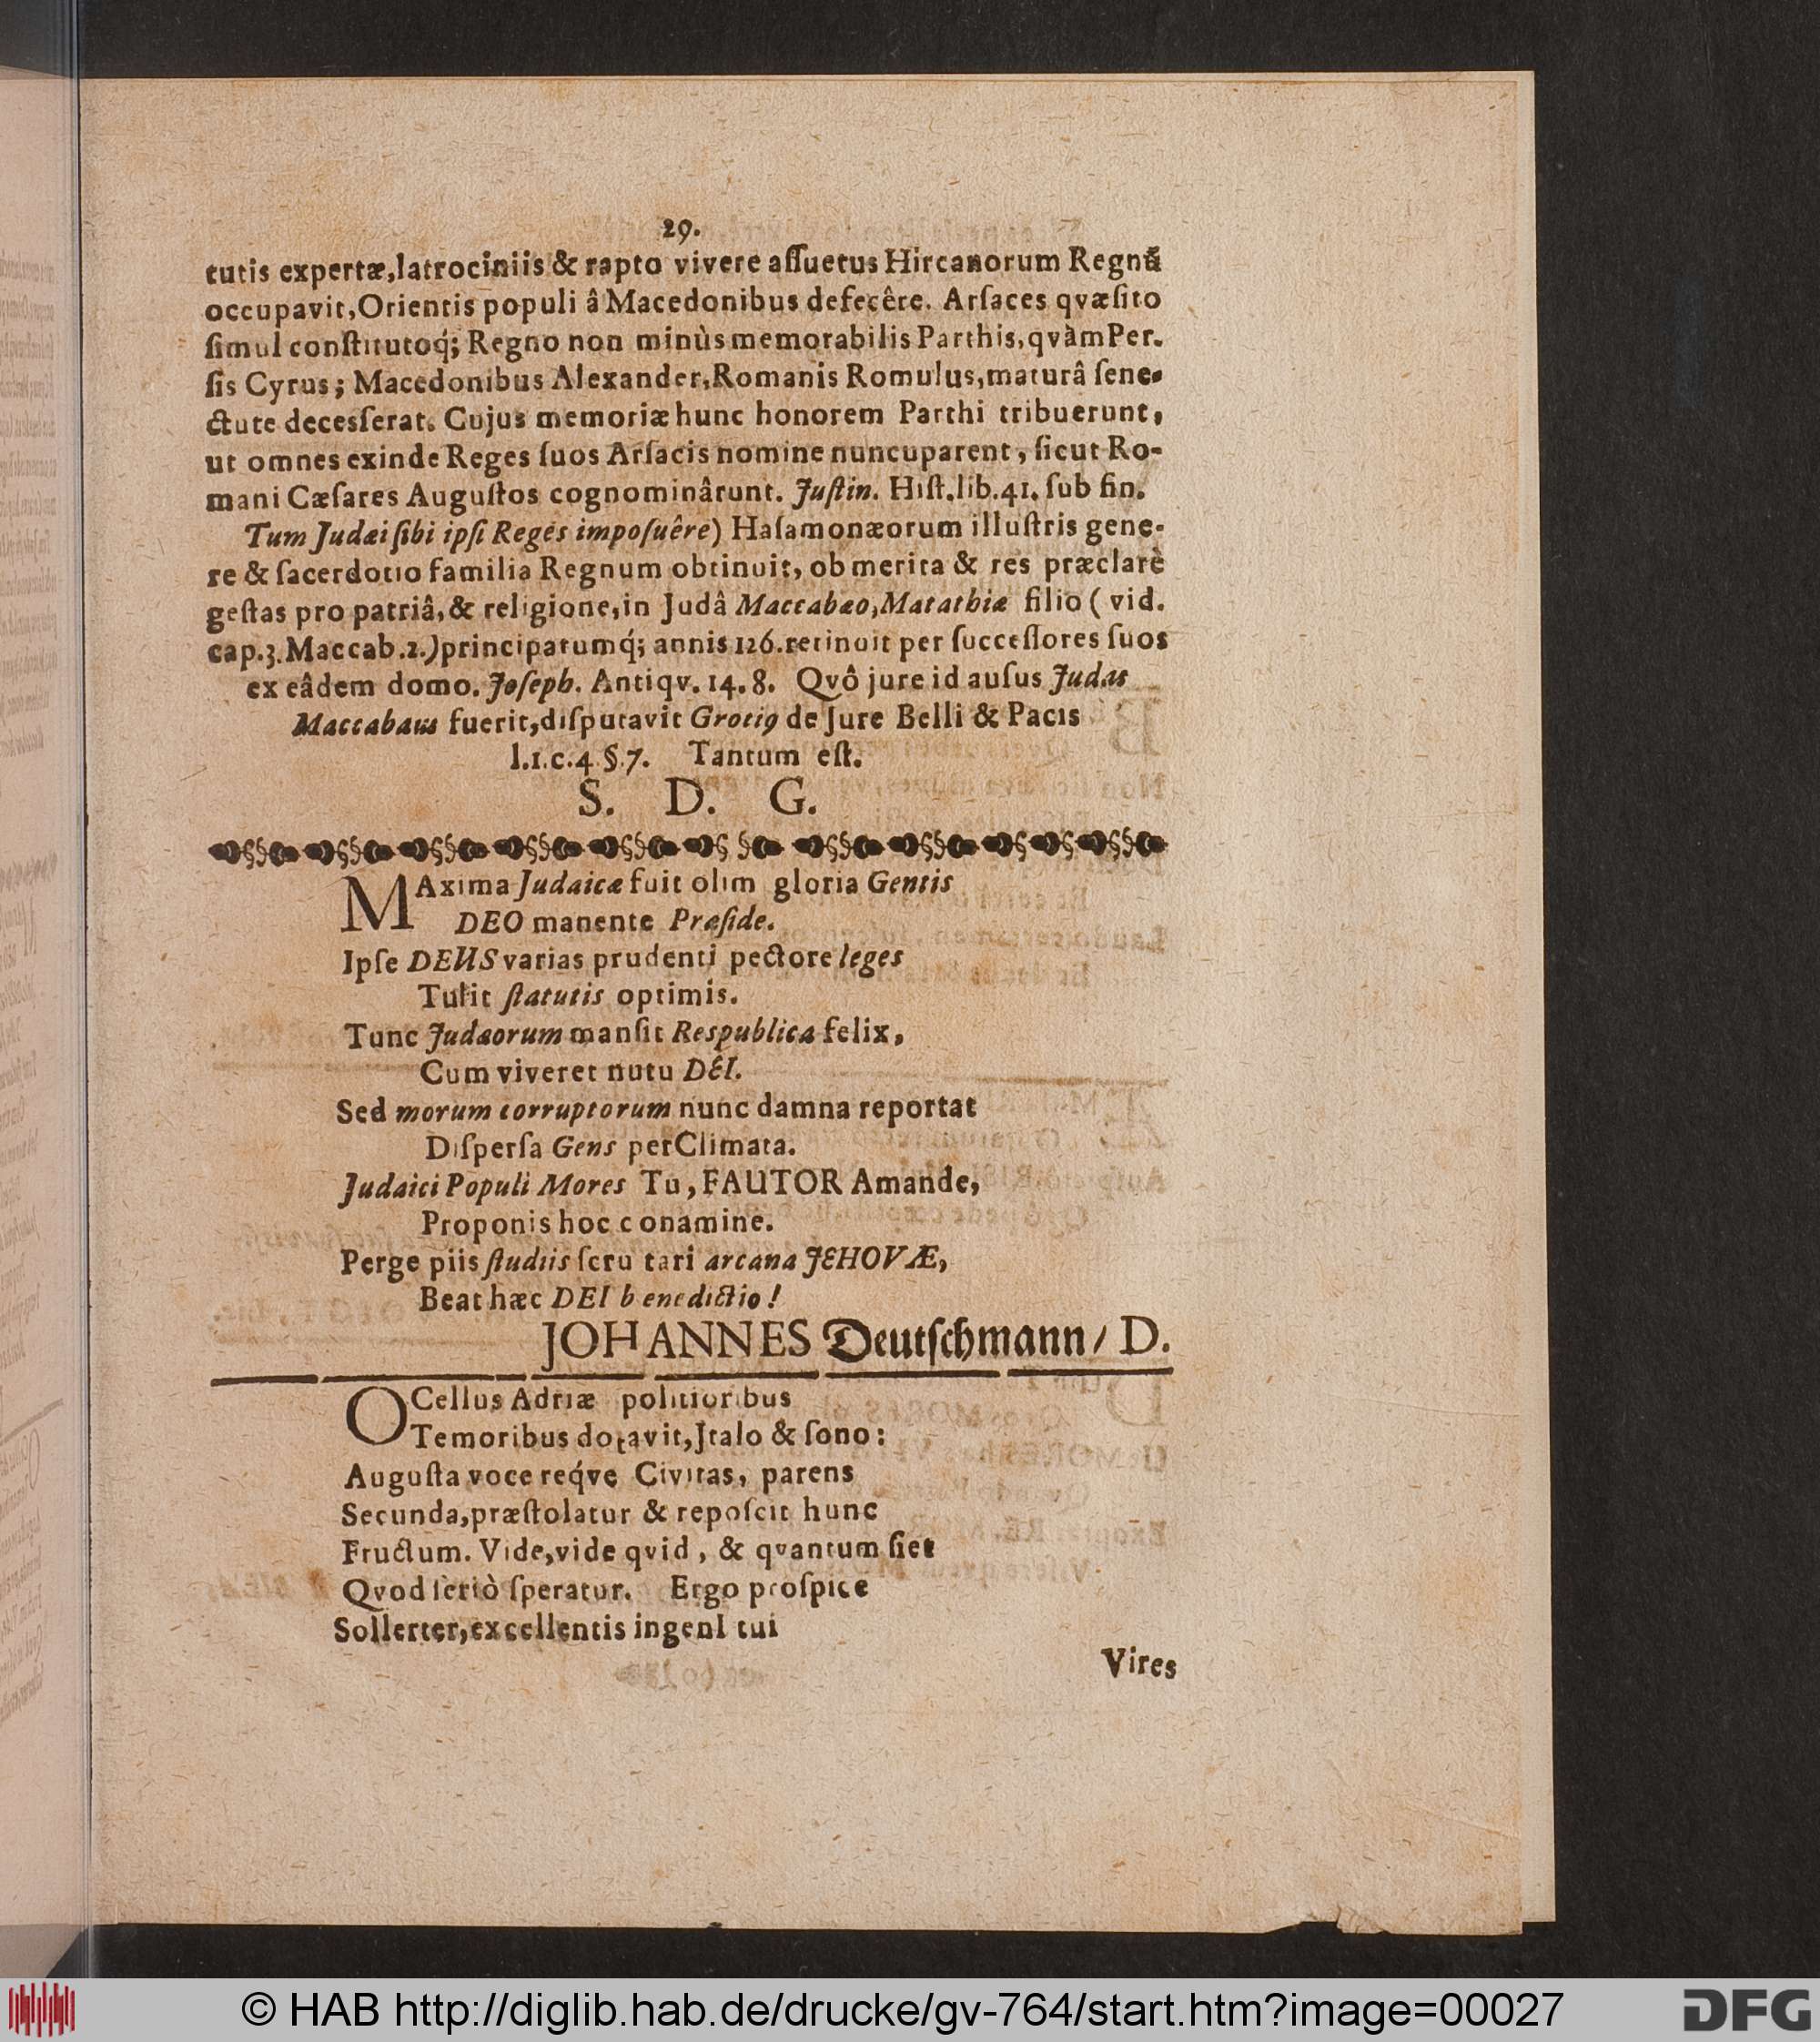 29.
tutis expertæ,latrociniis & rapto vivere aſſuetus Hircanorum Regnũ
occupavit,Orientis populi â Macedonibus defecêre. Arſaces qvæſito
ſimul conſtitutoq́; Regno non minùs memorabilis Parthis,qvàm Per.
ſis Cyrus; Macedonibus Alexander,Romanis Romulus,maturâ ſene-
ctute decesſerat. Cujus memoriæ hunc honorem Parthi tribuerunt,
ut omnes exinde Reges ſuos Arſacis nomine nuncuparent, ſicut Ro-
mani Cæſares Auguſtos cognominârunt. Juſtin. Hiſt.lib.41. ſub fin.
Tum Judæi ſibi ipſi Reges impoſuêre) Haſamonæorum illuſtris gene-
re & ſacerdotio familia Regnum obtinuit, ob merita & res præclarè
geſtas pro patriâ,& religione,in Judâ Maccabæo,Matathiæ filio ( vid.
cap.3.Maccab.2.)principatumq́; annis 126.retinuit per ſucceſſores ſuos
ex eâdem domo. Joſeph. Antiqv. 14. 8. Qvô jure id auſus Judas
Maccabæus fuerit,diſputavit Grotiꝰ de Jure Belli & Pacis
l.1.c.4 §.7. Tantum eſt.
S. D. G.
MAxima Judaicæ fuit olim gloria Gentis
DEO manente Præſide.
Ipſe DEUS varias prudenti pectore leges
Tulit ſtatutis optimis.
Tunc Judæorum manſit Respublica felix,
Cum viveret nutu DEI.
Sed morum corruptorum nunc damna reportat
Diſperſa Gens per Climata.
Judaici Populi Mores Tu, FAUTOR Amande,
Proponis hoc conamine.
Perge piis ſtudiis ſcru tari arcana JEHOVÆ,
Beat hæc DEI b enedictio!
JOHANNES Deutſchmann/ D.
OCellus Adriæ politioribus
Temoribus dotavit,Jtalo & ſono:
Auguſta voce req́ve Civitas, parens
Secunda,præſtolatur & repoſcit hunc
Fructum. Vide,vide qvid , & qvantum ſiet
Qvod ſeriò ſperatur. Ergo proſpice
Sollerter,excellentis ingenI tui
Vires
© HAB http://diglib.hab.de/drucke/gv-764/start.htm?image=00027
DFG